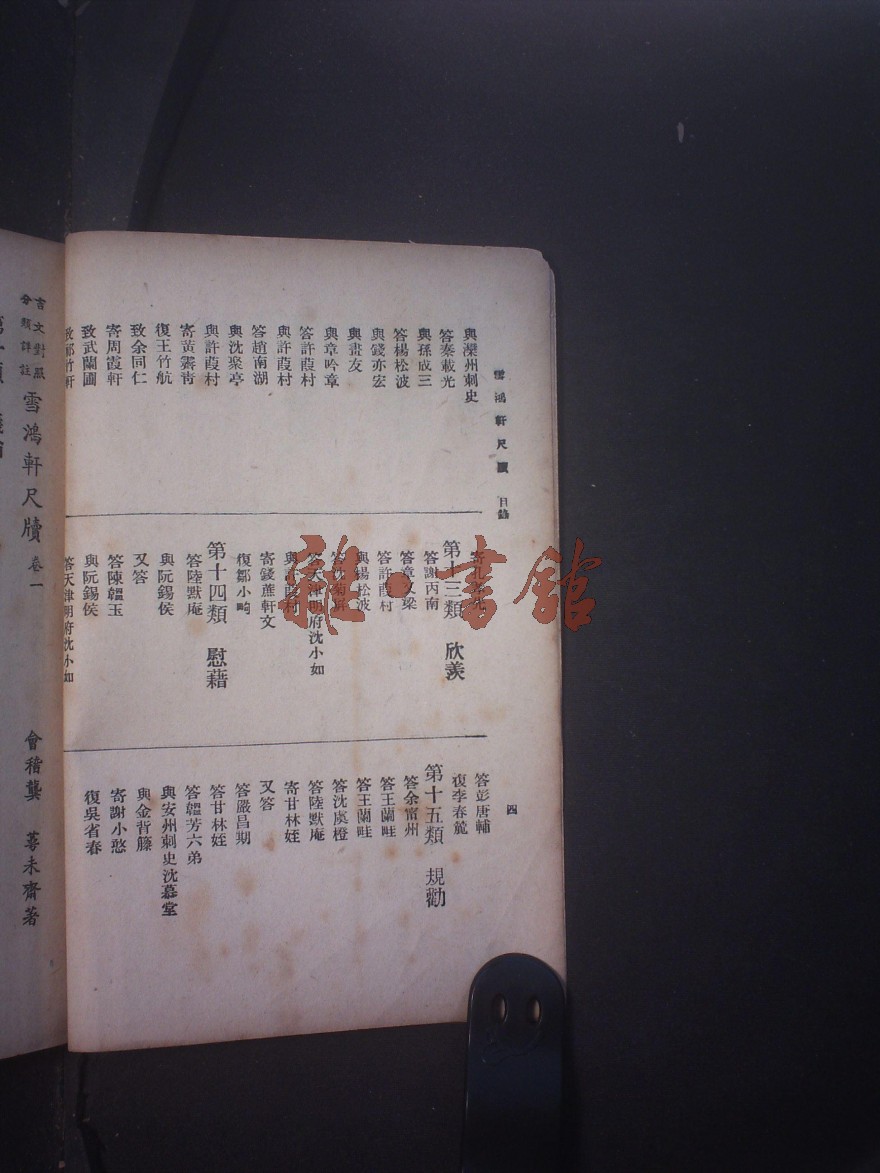 雪鴻軒尺牘 目錄
四
與灤州刺史
答秦載光
與孫成三
答楊松波
與錢亦宏
與畫友
與章吟章
答許葭村
與許葭村
答趙南湖
與沈聚亭
與許葭村
寄黃霽靑
復王竹航
致余同仁
寄周霞軒
致武蘭圃
致郁竹軒
第十三類 欣羨
答謝丙南
答章文梁
答許葭村
與楊松波
答天津明府沈小如
與許葭村
寄錢蔗軒文
復鄒小畸
第十四類 慰藉
答陸默庵
與阮錫侯
又答
答陳韞玉
與阮錫侯
答天津明府沈小如
答彭唐輔
復李春麓
第十五類 規勸
答余甯州
答王蘭畦
答王蘭畦
答沈虞橙
答陸默庵
寄甘林姪
又答
答嚴昌期
答甘林姪
答韞芳六弟
與安州刺史沈慕堂
與金背籐
寄謝小憨
復吳省春
言文對照
分類詳註
雪鴻軒尺牘 卷一
會稽龔 萼未齋著
雜·書館